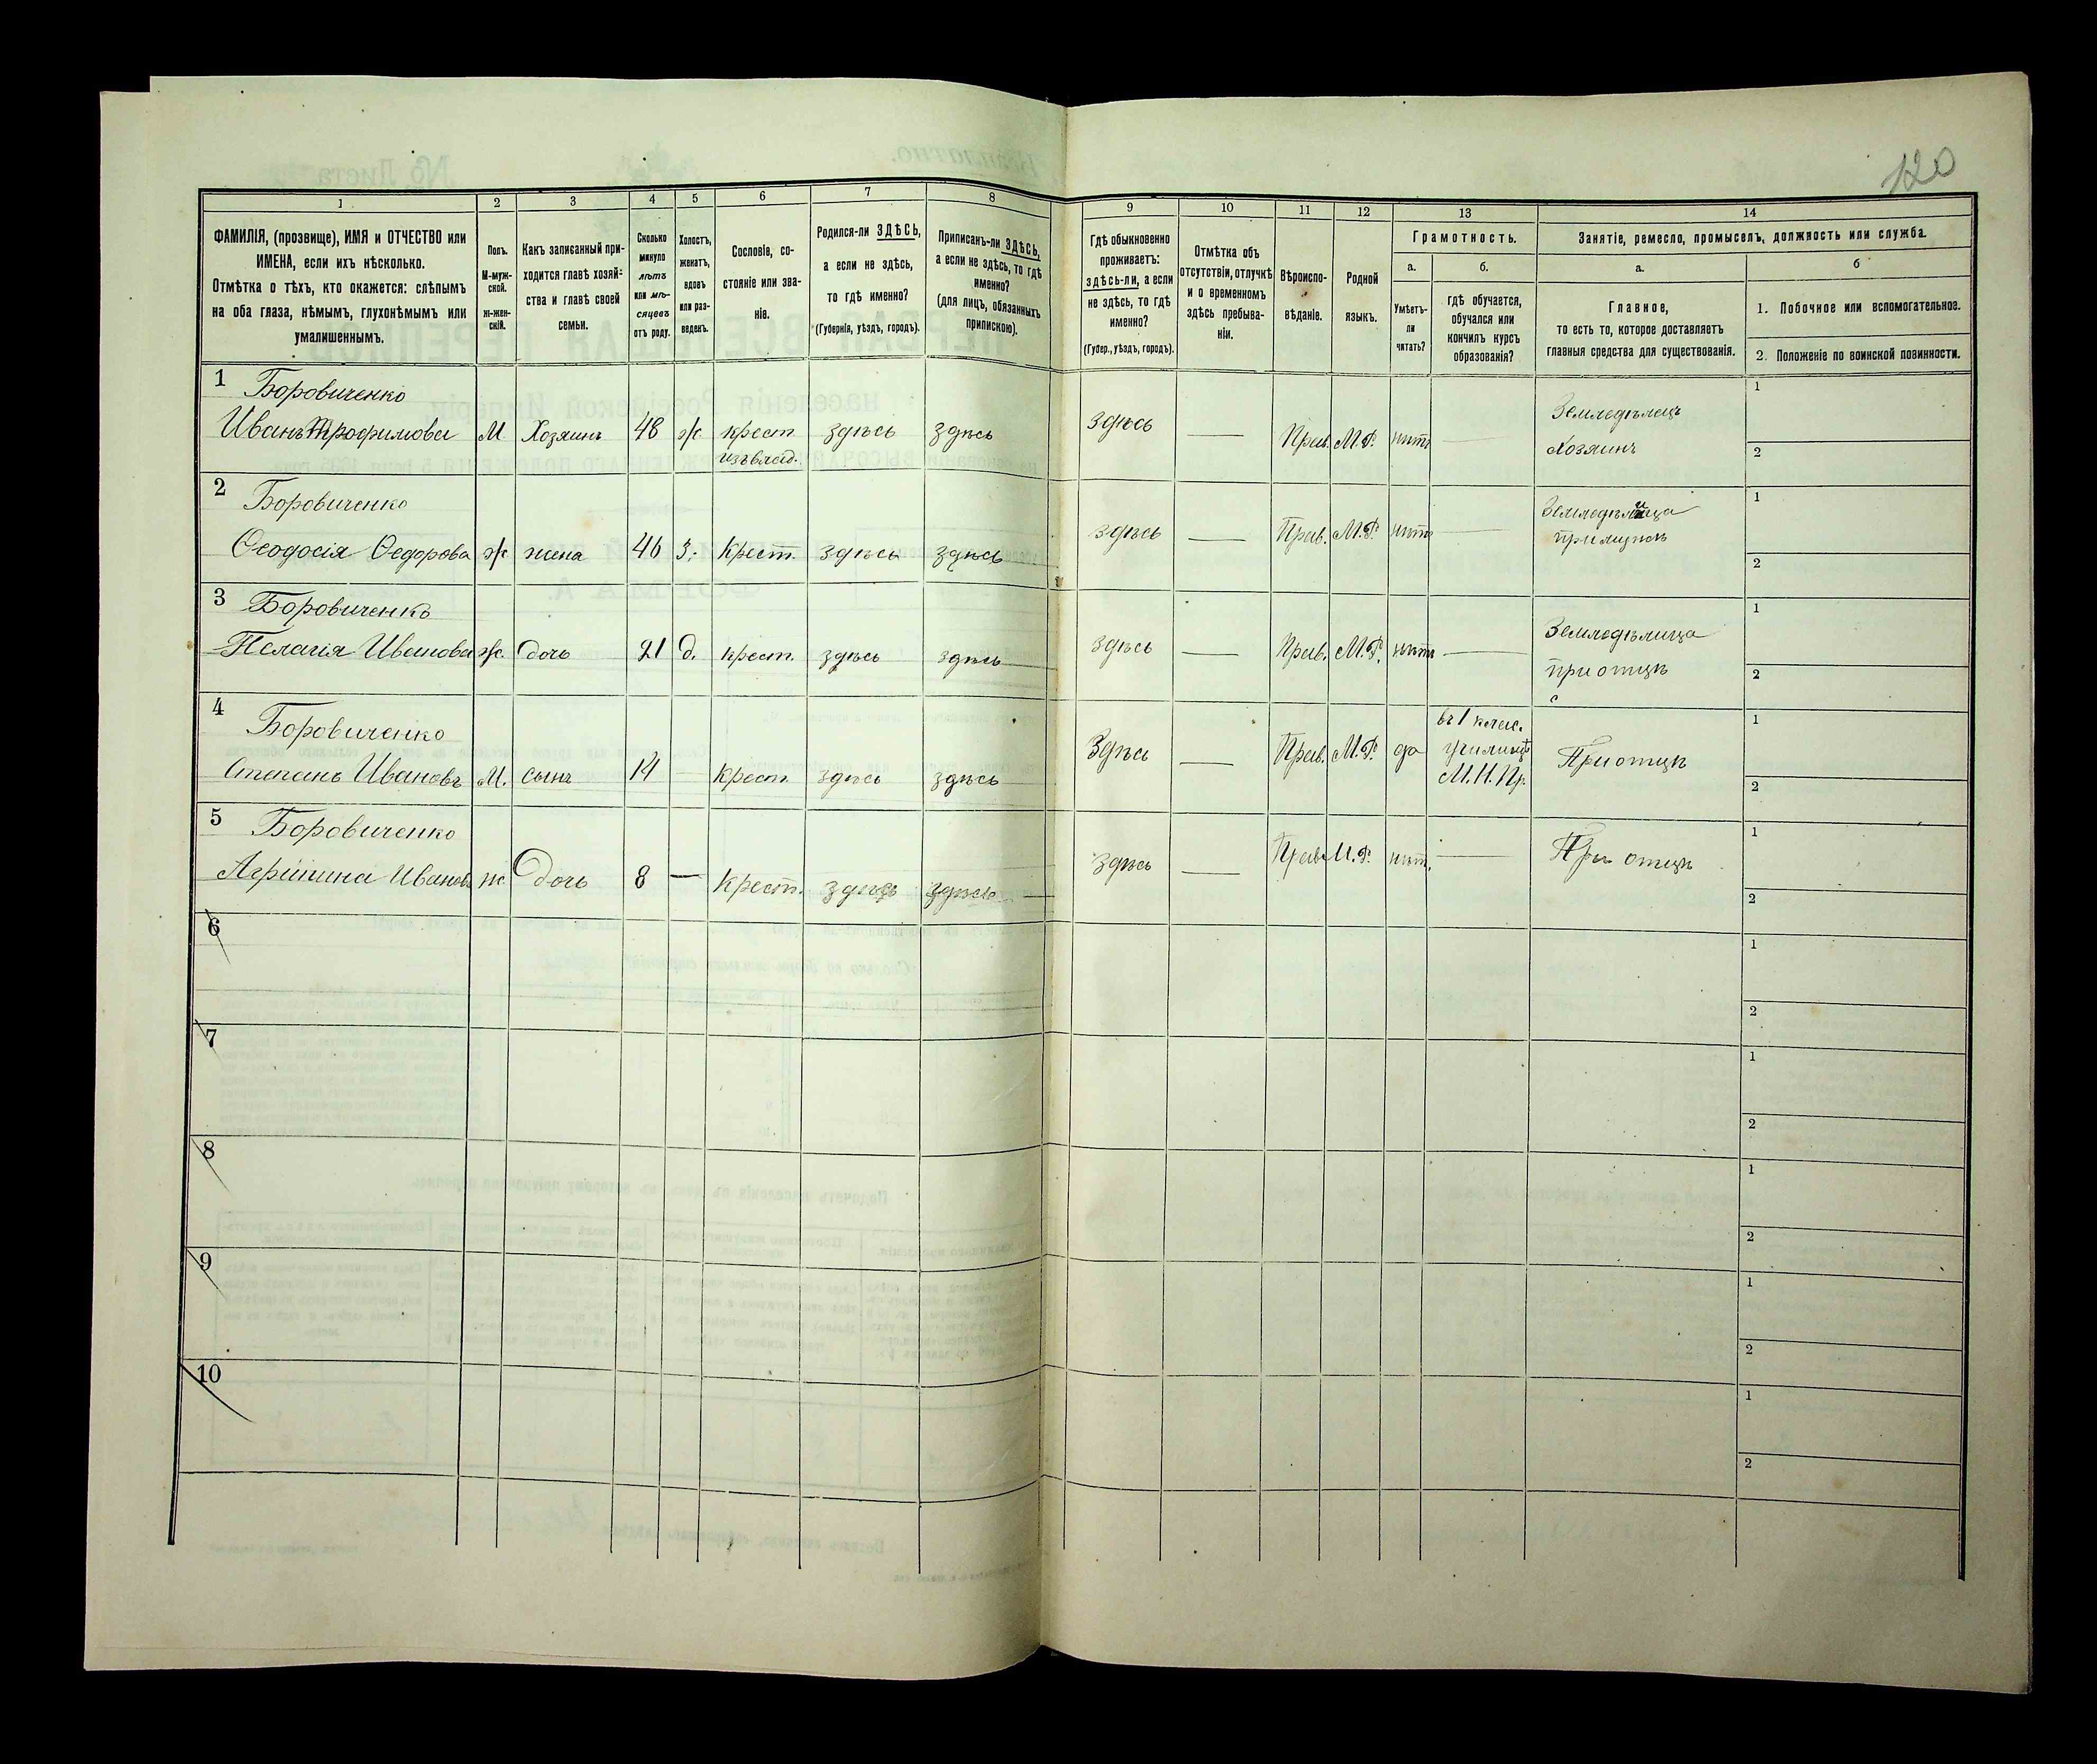 120
1
2
3
4
5
6
7
8
9
10
11
12
13
14
ФАМИЛІЯ, (прозвище), ИМЯ и ОТЧЕСТВО или
ИМЕНА, если ихъ нѣсколько.
Отмѣтка о тѣхъ, кто окажется: слѣпымъ
на оба глаза, нѣмымъ, глухонѣмымъ или
умалишеннымъ.
Полъ.
М-муж-
ской.
ж-жен-
скій.
Какъ записанный при-
ходится главѣ хозяй-
ства и главѣ своей
семьи.
Сколько
минуло
лѣтъ
или мѣ-
сяцевъ
отъ роду.
Холостъ,
женатъ,
вдовъ
или раз-
веденъ.
Сословіе, со-
стояніе или зва-
ніе.
Родился-ли ЗДѢСЬ,
а если не здѣсь,
то гдѣ именно?
(Губернія, уѣздъ, городъ).
Приписанъ-ли ЗДѢСЬ,
а если не здѣсь, то гдѣ
именно?
(для лицъ, обязанныхъ
припискою).
Гдѣ обыкновенно
проживаетъ:
здѣсь-ли, а если
не здѣсь, то гдѣ
именно?
(Губер., уѣздъ, городъ).
Отмѣтка объ
отсутствіи, отлучкѣ
и о временномъ
здѣсь пребыва-
ніи.
Вѣроиспо-
вѣданіе.
Родной
языкъ.
Грамотность.
а.
Умѣетъ-
ли
читать?
б.
гдѣ обучается,
обучался или
кончилъ курсъ
образованія?
Занятіе, ремесло, промыселъ, должность или служба.
а.
Главное,
то есть то, которое доставляетъ
главныя средства для существованія.
б
1. Побочное или вспомогательное.
2. Положеніе по воинской повинности.
1 Боровиченко
Иванъ Трофимовъ М Хозяинъ 48 ж. крест. здѣсь здѣсь
изъ влад.
здѣсь — Прав. М.Р. нѣтъ —
Земледѣлецъ
Хозяинъ
1
2
2 Боровиченко
Ѳеодосія Ѳедорова ж. жена 46 З. Крест. здѣсь здѣсь
здѣсь — Прав. М.Р. нѣтъ —
Земледѣлица
при мужѣ
1
2
3 Боровиченко
Пелагія Иванова ж. дочь 21 д. крест. здѣсь здѣсь
здѣсь — Прав. М.Р. нѣтъ —
Земледѣлица
при отцѣ
1
2
4 Боровиченко
Степанъ Ивановъ М. сынъ 14 — крест. здѣсь здѣсь
Здѣсь — Прав. М.Р. да
въ 1 клас.
училищѣ
М.Н.Пр.
При отцѣ
1
2
5 Боровиченко
Иванова ж. Дочь 8 — Крест. здѣсь здѣсь
здѣсь — Прав. М.Р. нѣт. —
При отцѣ
1
2
6
1
2
7
1
2
8
1
2
9
1
2
10
1
2